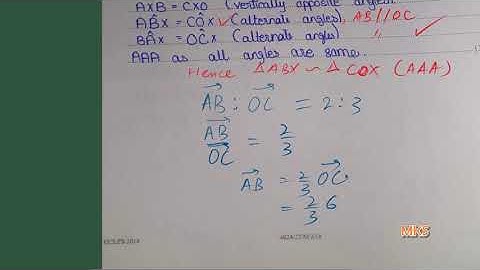 AXB = CXO (vertically opposite angles)
AÔX = CÔX ✓ (alternate angles), AB//OC
BÂX = OĈX (alternate angles) " ✓
AAA as all angles are same.
Hence △ABX ~ △COX (AAA)
AB : OC = 2:3
AB/OC = 2/3
AB = 2/3 OC
= 2/3 6
MKS